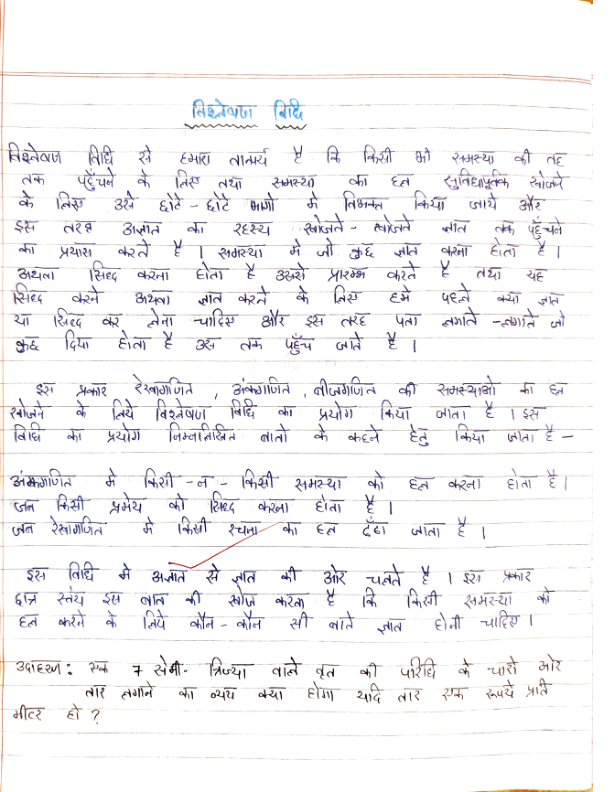 विश्लेषण विधि
विश्लेषण विधि से हमारा तात्पर्य है कि किसी भी समस्या की तह
तक पहुँचने के लिए तथा समस्या का हल सुविधापूर्वक खोजने
के लिए उसे छोटे - छोटे भागो मे विभक्त किया जाये और
इस तरह अज्ञात का रहस्य खोजते - खोजते ज्ञात तक पहुँचने
का प्रयास करते है । समस्या मे जो कुछ ज्ञात करना होता है ।
अथवा सिध्द करना होता है उससे प्रारम्भ करते है तथा यह
सिध्द करने अथवा ज्ञात करने के लिए हमे पहले क्या ज्ञात
या सिध्द कर लेना चाहिए और इस तरह पता लगाते -लगाते जो
कुछ दिया होता है उस तक पहुँच जाते है ।
इस प्रकार रेखागणित , अंकगणित , बीजगणित की समस्याओ का हल
खोजने के लिये विश्लेषण विधि का प्रयोग किया जाता है । इस
विधि का प्रयोग निम्नलिखित बातो के कहने हेतु किया जाता है -
अंकगणित मे किसी - न - किसी समस्या को हल करना होता है।
जब किसी प्रमेय को सिध्द करना होता है ।
जब रेखागणित मे किसी रचना का हल ढूँढा जाता है ।
इस विधि मे अज्ञात से ज्ञात की ओर चलते है । इस प्रकार
छात्र स्वंय इस बात की खोज करता है कि किसी समस्या को
हल करने के लिये कौन - कौन सी बाते ज्ञात होनी चाहिए ।
उदाहरण : एक 7 सेमी- त्रिज्या वाले वृत की परिधि के चारो ओर
तार लगाने का व्यय क्या होगा यदि तार एक रूपये प्रति
मीटर हो ?